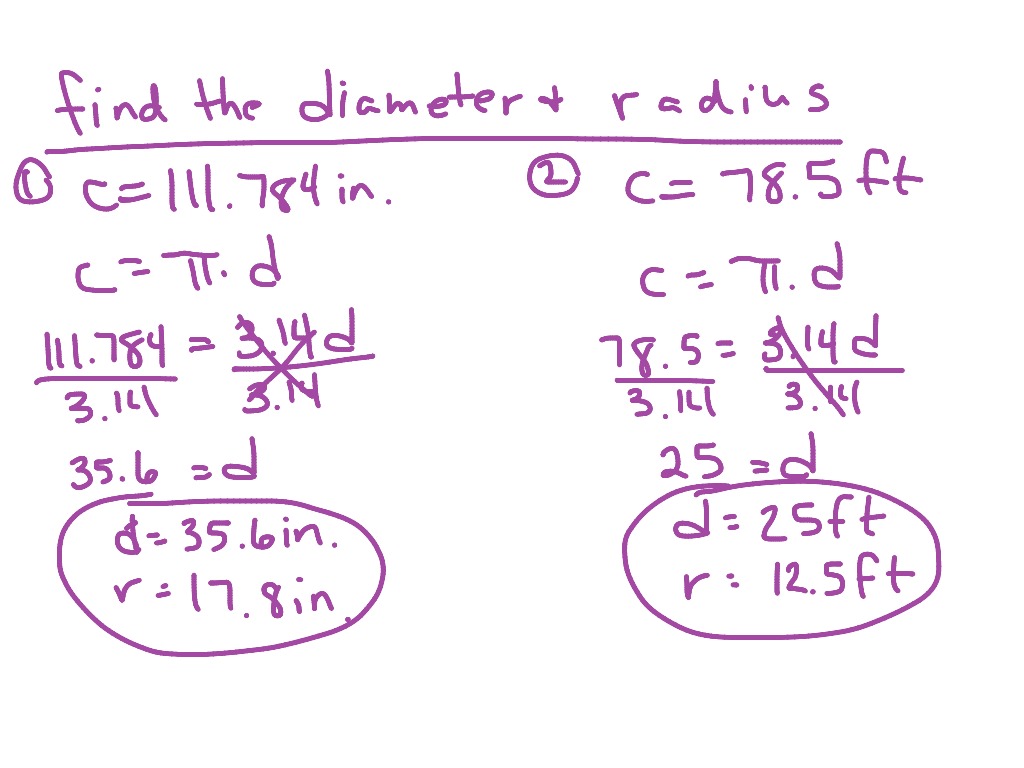 find the diameter + radius
① C = 111.784 in.
C = π · d
111.784 = 3.14 d
3.14 3.14
35.6 = d
d = 35.6 in.
r = 17.8 in.
② C = 78.5 ft
C = π · d
78.5 = 3.14 d
3.14 3.14
25 = d
d = 25 ft
r = 12.5 ft